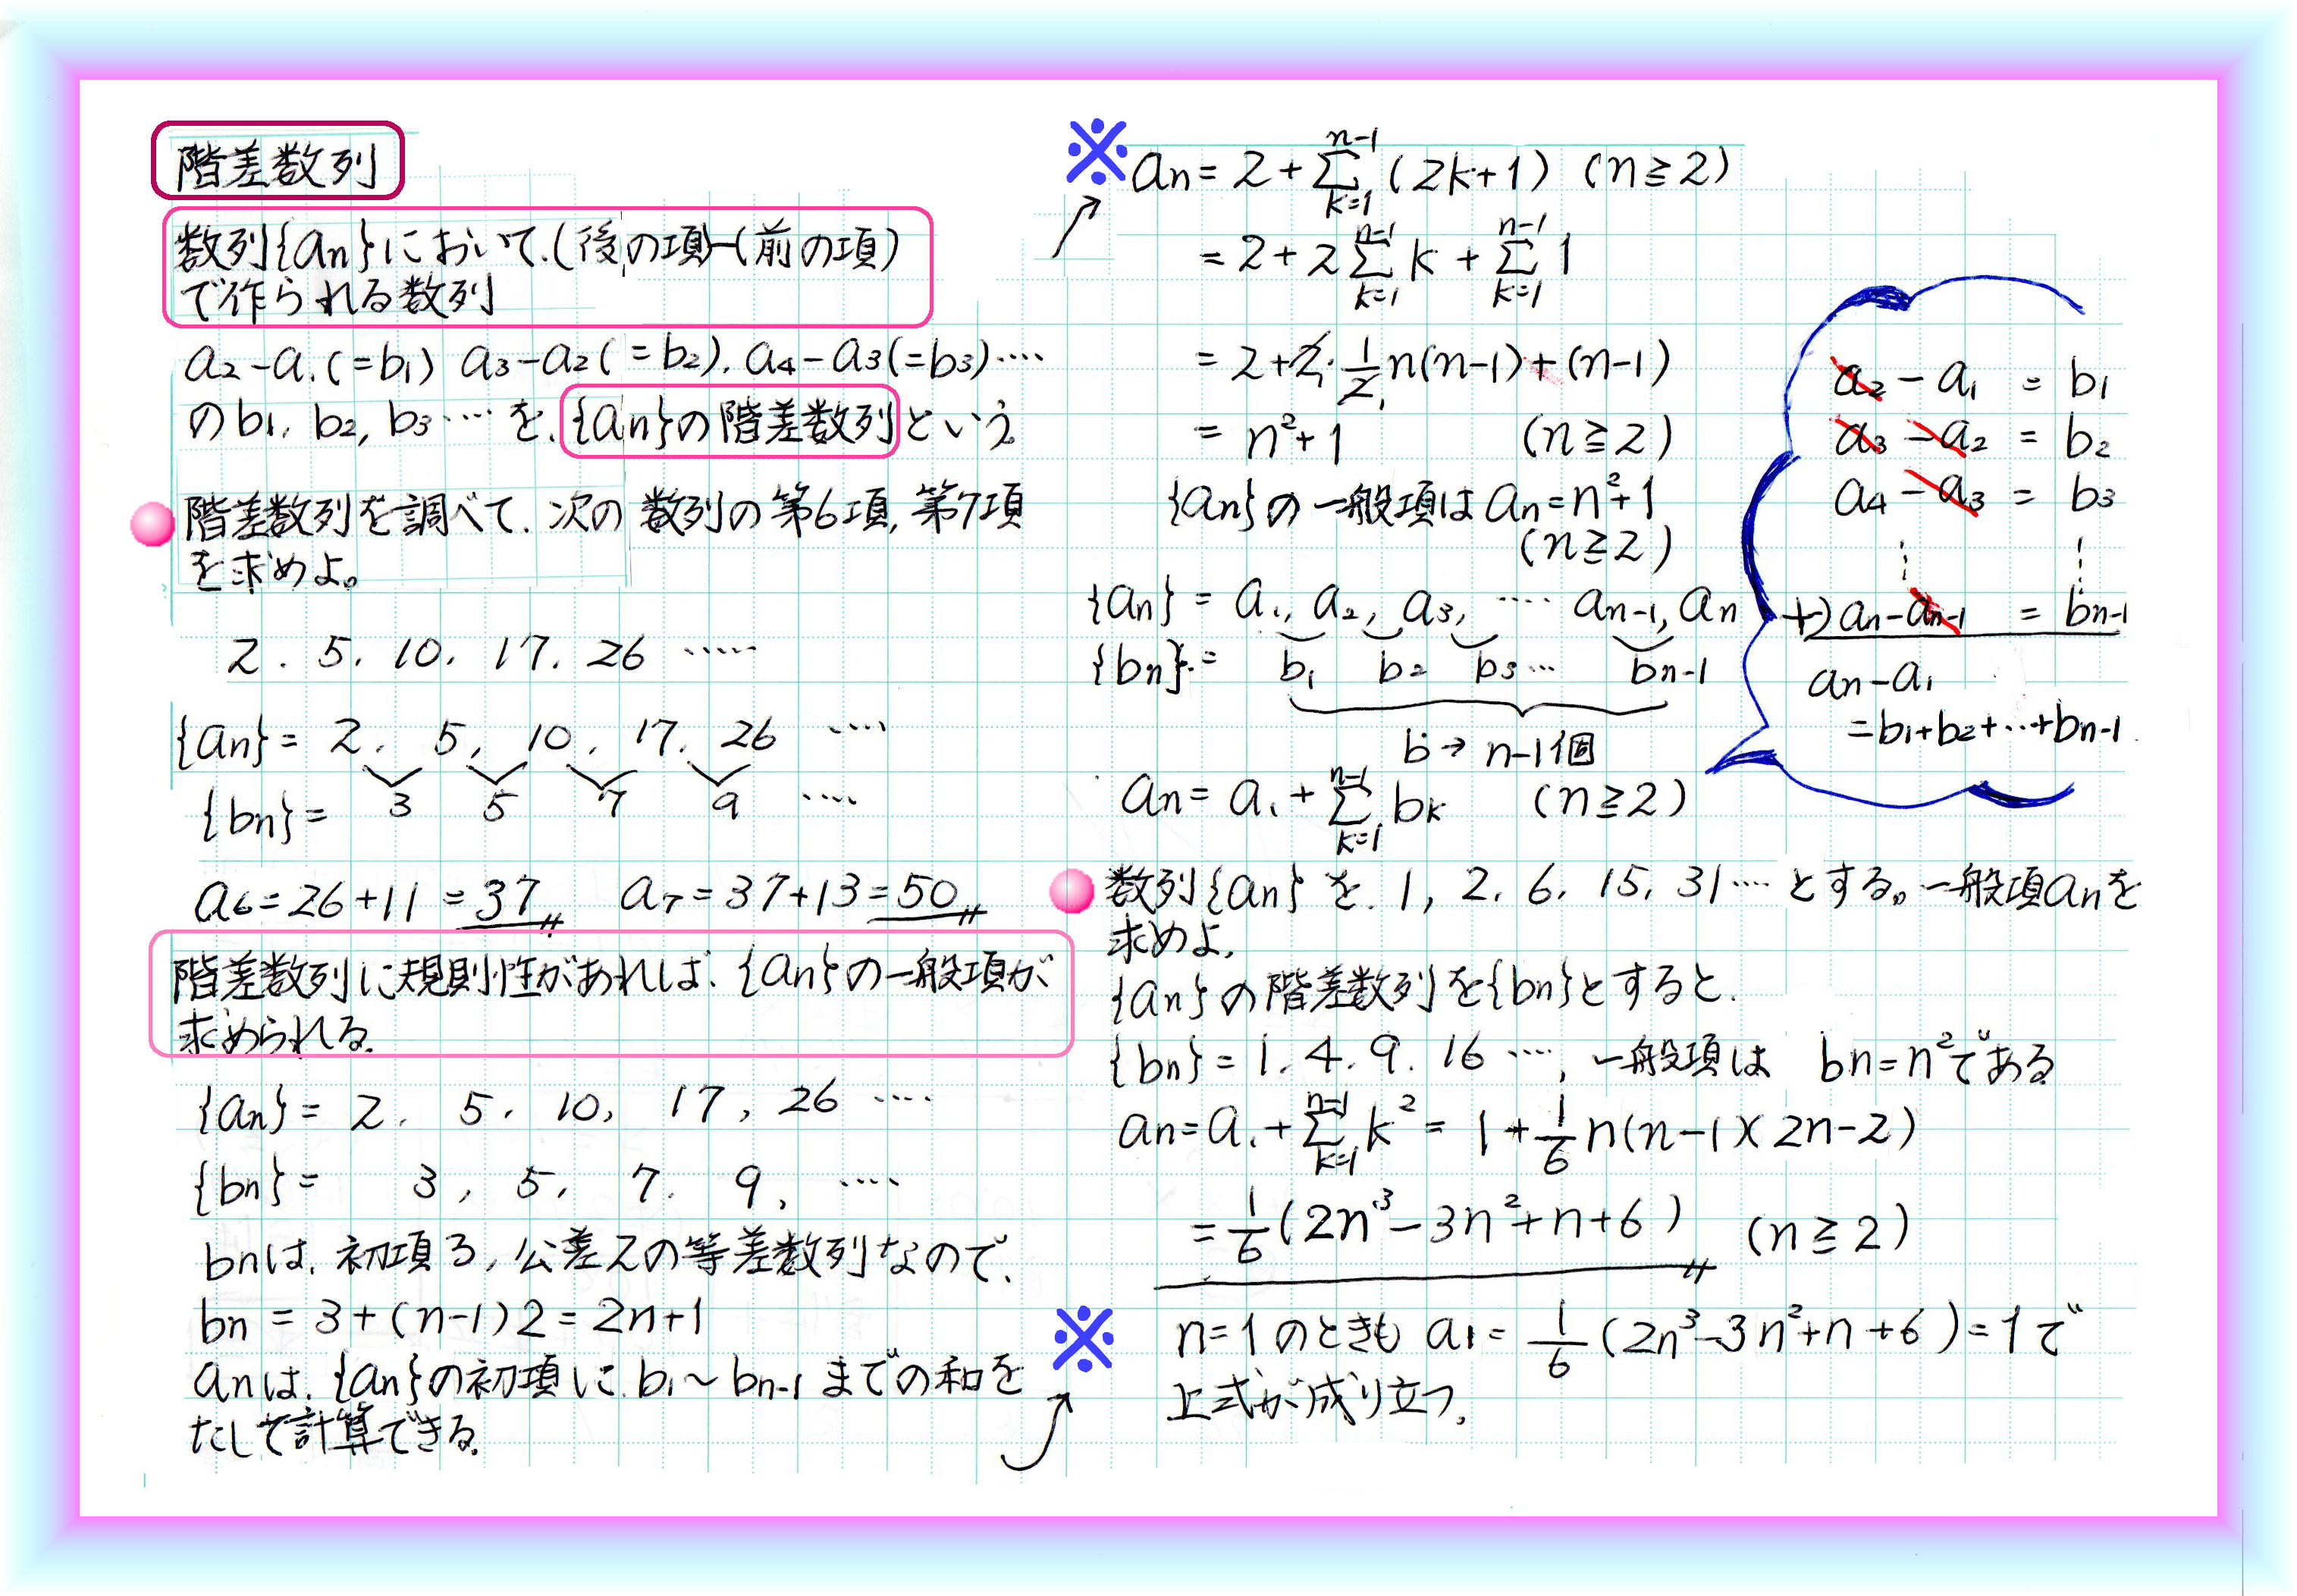 階差数列
数列{an}において、(後の項)-(前の項)
で作られる数列
a2-a1(=b1) a3-a2(=b2), a4-a3(=b3)‥‥
のb1, b2, b3‥‥を、{an}の階差数列という。
階差数列を調べて、次の数列の第6項, 第7項
を求めよ。
2, 5, 10, 17, 26 ‥‥‥
{an}= 2, 5, 10, 17, 26 ‥‥
{bn}= 3 5 7 9 ‥‥
a6=26+11=37 a7=37+13=50
階差数列に規則性があれば、{an}の一般項が
求められる。
{an}= 2, 5, 10, 17, 26 ‥‥
{bn}= 3, 5, 7, 9, ‥‥
bnは、初項3, 公差2の等差数列なので、
bn = 3+(n-1)2=2n+1
anは、{an}の初項に、b1~bn-1までの和を
たして計算できる。
※
※ an=2+Σ[k=1, n-1](2k+1) (n≧2)
=2+2Σ[k=1, n-1]k+Σ[k=1, n-1]1
=2+2・1/2 n(n-1)+(n-1)
= n²+1 (n≧2)
{an}の一般項はan=n²+1
(n≧2)
{an}= a1, a2, a3, ‥‥ an-1, an
{bn}= b1 b2 b3‥‥ bn-1
b→n-1個
an=a1+Σ[k=1, n-1]bk (n≧2)
a2-a1 = b1
a3-a2 = b2
a4-a3 = b3
⋮ ⋮
+)an-an-1 = bn-1
an-a1
=b1+b2+‥+bn-1
数列{an}を、1, 2, 6, 15, 31‥‥とする。一般項anを
求めよ。
{an}の階差数列を{bn}とすると、
{bn}=1, 4, 9, 16‥‥, 一般項は bn=n²である
an=a1+Σ[k=1, n-1]k²=1+1/6 n(n-1)(2n-2)
=1/6(2n³-3n²+n+6) (n≧2)
n=1のときも a1=1/6(2n³-3n²+n+6)=1で
上式が成り立つ。